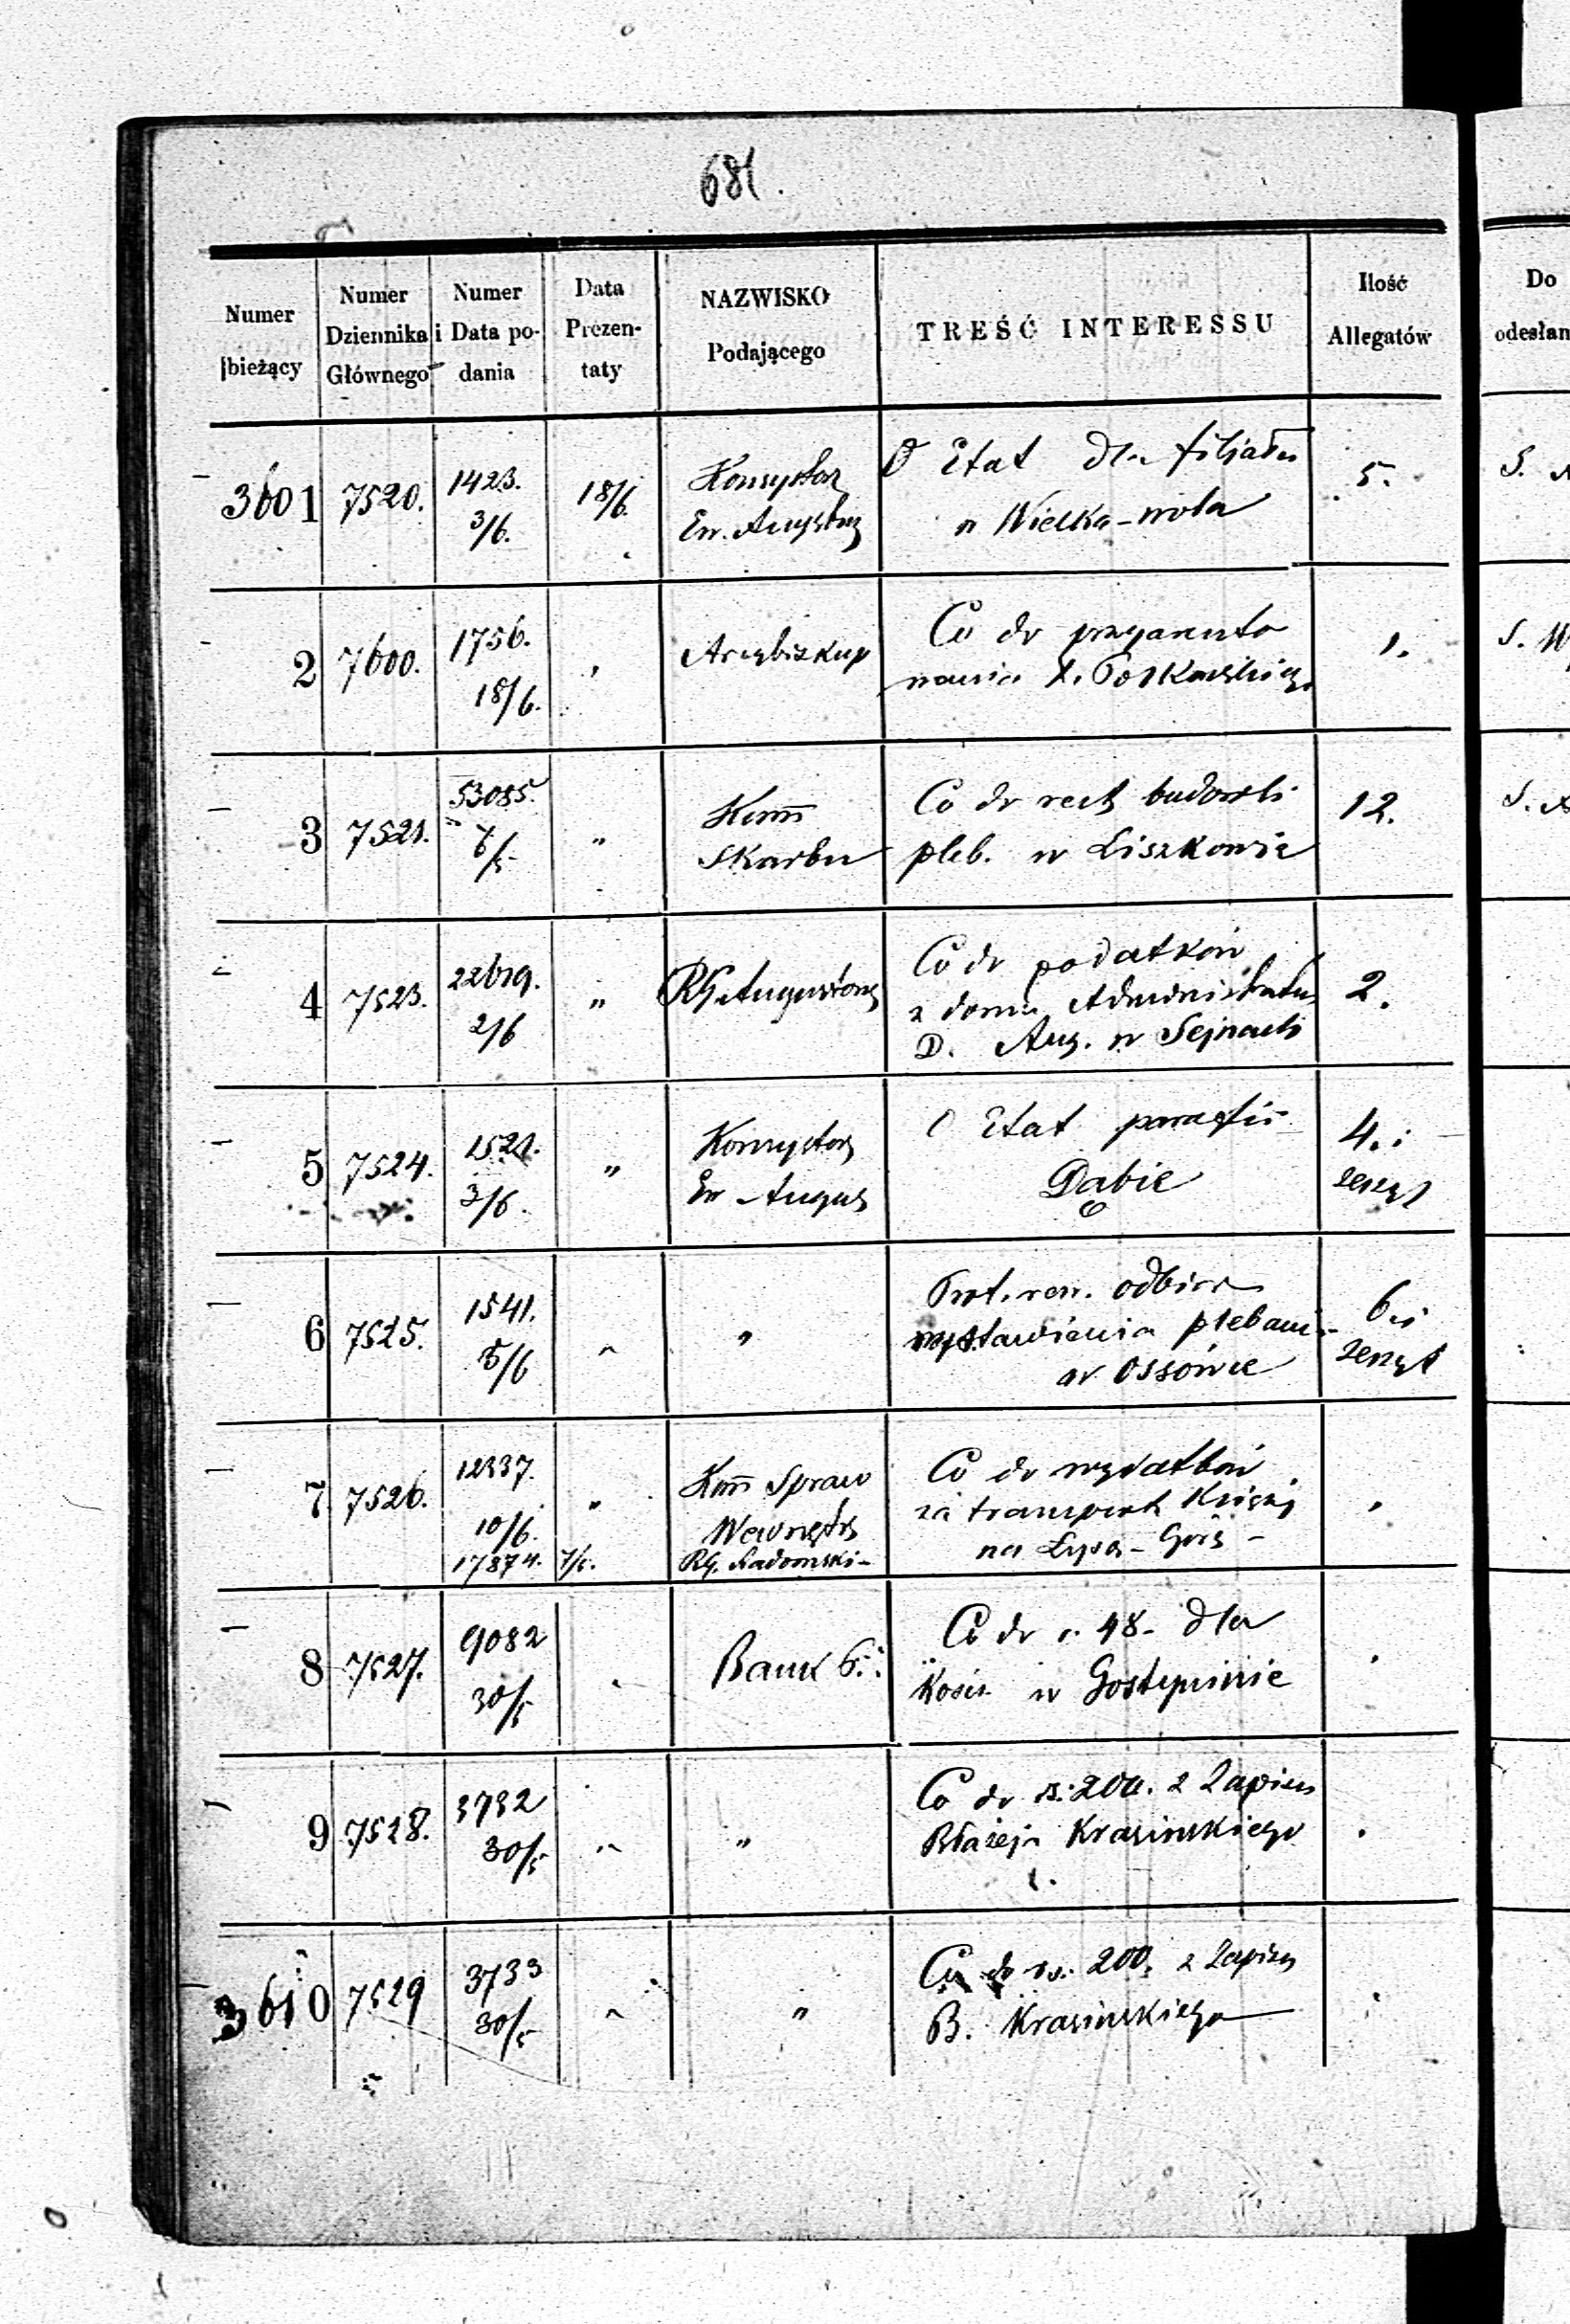 681.
Numer
bieżący
Numer
Dziennika
Głównego
Numer
i Data po-
dania
Data
Prezen-
taty
NAZWISKO
Podającego
TREŚĆ INTERESSU
Ilość
Allegatów
Do
odesłan
3601 7520. 1423. 3/6. 18/6. Konsystorz Ew. Augsburg
O Etat dla filiału
w Wielka-wola
5.
S.
2 7600. 1756. 18/6. " Arcybiskup
Co do
wania X.
1.
S. W
3 7521. 53085. 6/5 " Komm Skarbu
Co do rest budowli
pleb. w Liszkowie
12.
S.
4 7523. 22619. 2/6 " RG. Augustows
Co do podatków
z domu Administrat
D. Aug. w Sejnach
2.
5 7524. 1521. 3/6. " Konsystorz Ew Augus
O Etat parafii
Dąbie
4. i
zeszyt
6 7525. 1541. 5/6 " "
Prot. rew. odbior
wystawienia plebanii
w Ossówce
6 i
zeszyt
7 7526. 12337. 10/6. " Komm Spraw Wewnętrz
17874. 7/6. RG. Radomski
Co do wydatków
za transport Księży
na Łysą-Górę
"
8 7527. 9082 30/5 " Bank
Co do r. 48. dla
Kości. w Gostyninie
"
9 7528. 3732 30/5 " "
Co do rs. 200. z Zapisu
Błażeja Krasińskiego
"
3610 7529 3733 30/5 " "
Co do rs. 200. z Zapisu
B. Krasińskiego
"